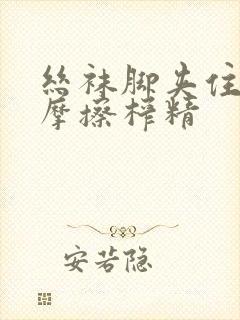 丝袜脚夹住
摩擦榨精
安若隐